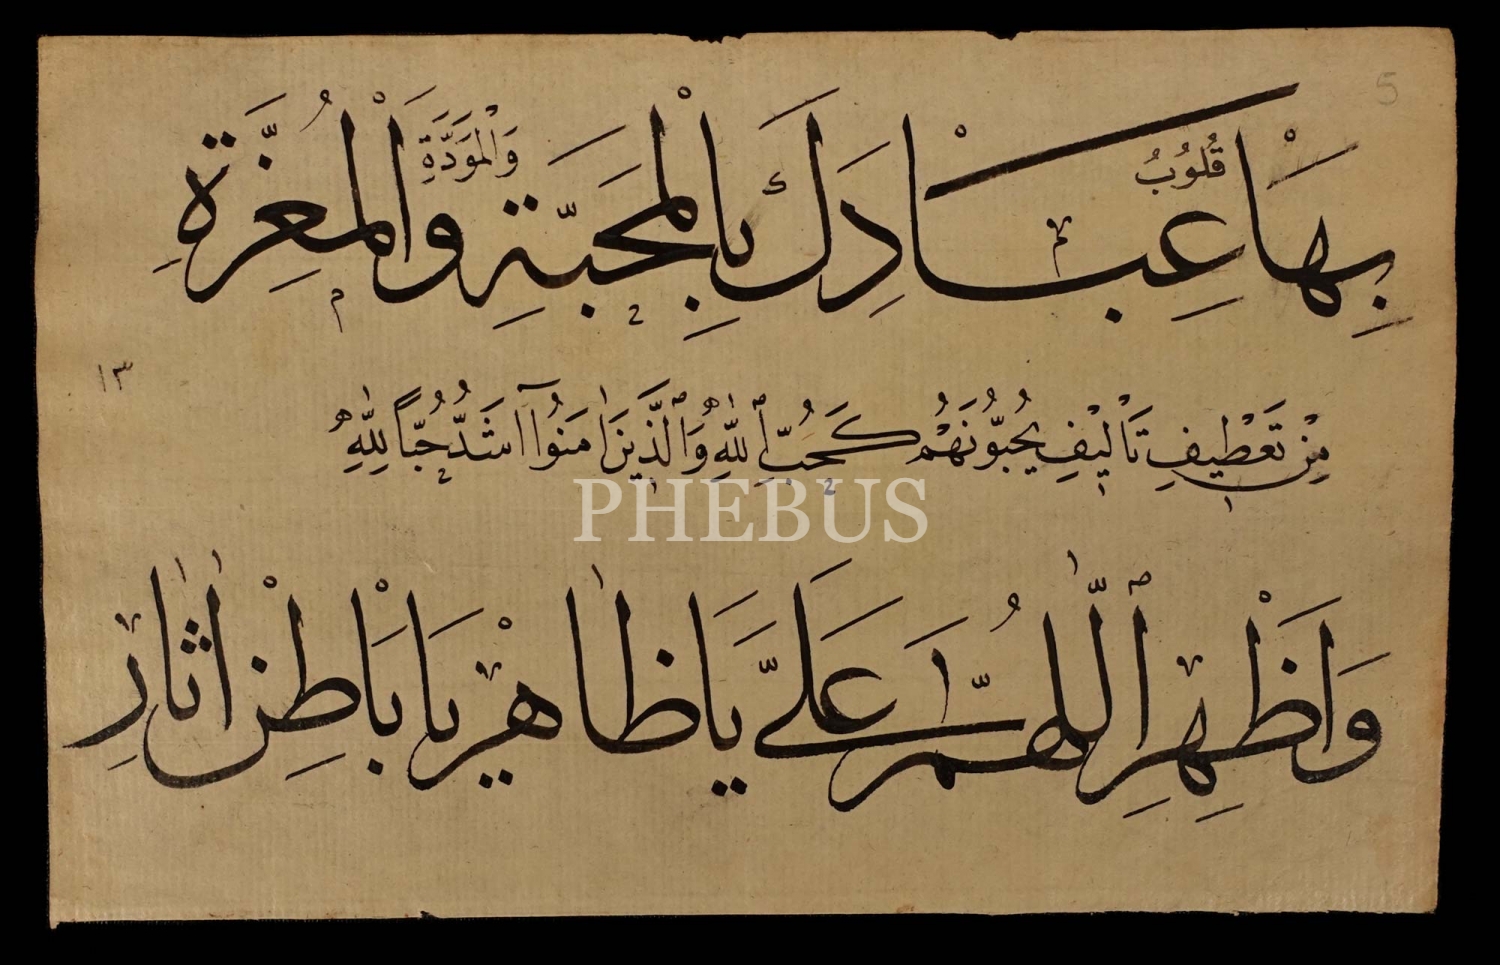 5
بِهَا قُلُوبُ عِبَادِكَ بِالْمَحَبَّةِ وَالْمَوَدَّةِ وَالْمُعِزَّةِ
١٣
مِنْ تَعْطِيفِ تَأْلِيْفِ يُحِبُّونَهُمْ كَحُبِّ اللهِ وَالَّذِينَ اٰمَنُوا اَشَدُّ حُبًّا لِلّٰهِ
PHEBUS
وَاَظْهِرِ اللّٰهُمَّ عَلَيَّ يَا ظَاهِرْ يَا بَاطِنْ اٰثَارِ